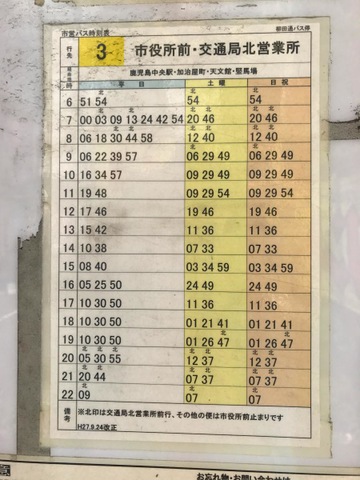 市営バス時刻表 柳田通バス停
行先 3 市役所前・交通局北営業所
鹿児島中央駅・加治屋町・天文館・竪馬場
時 平日 土曜 日祝
北 北 北
6 51 54 54 54
北 北 北
7 00 03 09 13 24 42 54 20 46 20 46
北 北 北 北
8 06 18 30 44 58 12 40 12 40
9 06 22 39 57 06 29 49 06 29 49
10 16 34 57 09 29 49 09 29 49
11 19 48 09 29 54 09 29 54
12 17 46 19 46 19 46
13 15 42 11 36 11 36
14 10 38 07 33 07 33
15 08 40 03 34 59 03 34 59
16 05 25 50 24 49 24 49
17 10 30 50 11 36 11 36
18 10 30 50 01 21 41 01 21 41
北 北
19 10 30 50 01 26 47 01 26 47
北 北 北 北 北 北
20 05 30 55 12 37 12 37
北 北 北 北 北 北
21 20 44 07 37 07 37
北 北 北
22 09 07 07
備考 ※北印は交通局北営業所前行、その他の便は市役所前止まりです
H27.9.24改正
お忘れ物・お問い合わせは